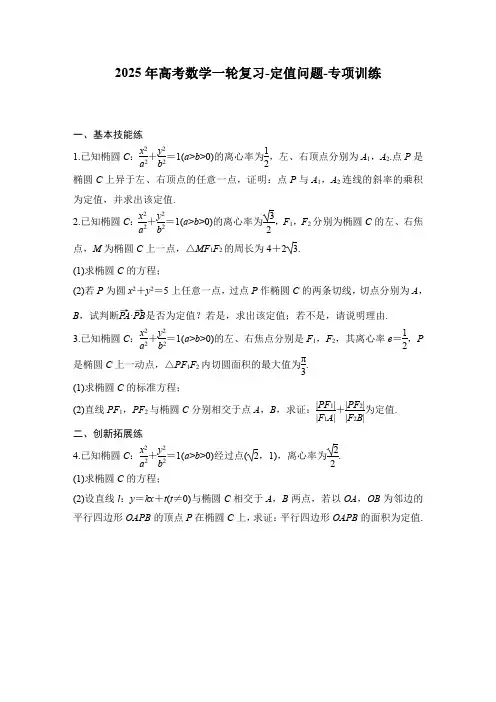 2025年高考数学一轮复习-定值问题-专项训练
一、基本技能练
1.已知椭圆 C：x²/a²＋y²/b²＝1(a>b>0)的离心率为1/2，左、右顶点分别为 A₁，A₂.点 P 是
椭圆 C 上异于左、右顶点的任意一点，证明：点 P 与 A₁，A₂ 连线的斜率的乘积
为定值，并求出该定值.
2.已知椭圆 C：x²/a²＋y²/b²＝1(a>b>0)的离心率为√3/2，F₁，F₂ 分别为椭圆 C 的左、右焦
点，M 为椭圆 C 上一点，△MF₁F₂ 的周长为 4＋2√3.
(1)求椭圆 C 的方程；
(2)若 P 为圆 x²＋y²＝5 上任意一点，过点 P 作椭圆 C 的两条切线，切点分别为 A，
B，试判断PA·PB是否为定值？若是，求出该定值；若不是，请说明理由.
3.已知椭圆 C：x²/a²＋y²/b²＝1(a>b>0)的左、右焦点分别是 F₁，F₂，其离心率 e＝1/2，P
是椭圆 C 上一动点，△PF₁F₂ 内切圆面积的最大值为π/3.
(1)求椭圆 C 的标准方程；
(2)直线 PF₁，PF₂ 与椭圆 C 分别相交于点 A，B，求证：|PF₁|/|F₁A|＋|PF₂|/|F₂B|为定值.
二、创新拓展练
4.已知椭圆 C：x²/a²＋y²/b²＝1(a>b>0)经过点(√2，1)，离心率为√2/2.
(1)求椭圆 C 的方程；
(2)设直线 l：y＝kx＋t(t≠0)与椭圆 C 相交于 A，B 两点，若以 OA，OB 为邻边的
平行四边形 OAPB 的顶点 P 在椭圆 C 上，求证：平行四边形 OAPB 的面积为定值.